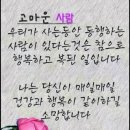 고마운 사람
우리가 사는동안 동행하는
사람이 있다는것은 참으로
행복하고 복된 일입니다
나는 당신이 매일매일
건강과 행복이 같이하길
소망합니다